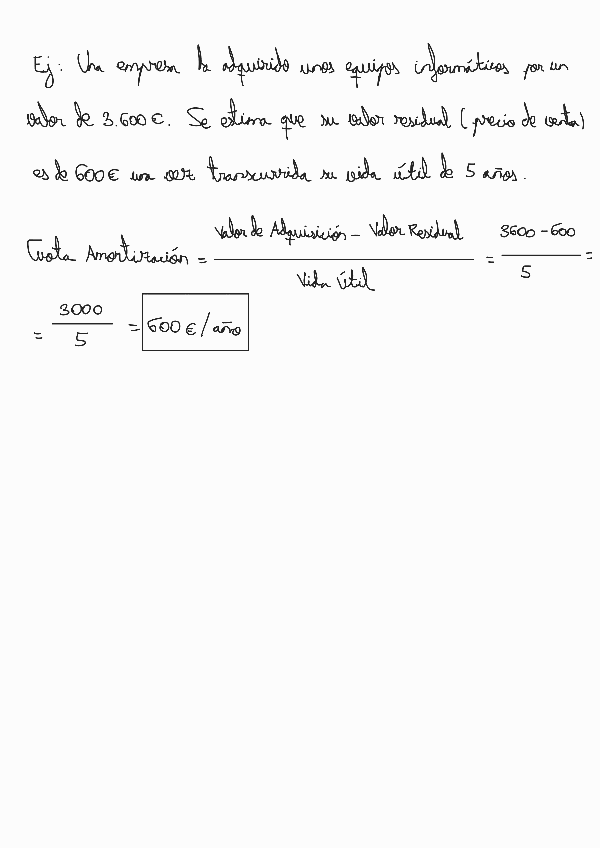 Ej: Una empresa ha adquirido unos equipos informáticos por un
valor de 3.600 €. Se estima que su valor residual (precio de venta)
es de 600 € una vez transcurrida su vida útil de 5 años.
Cuota Amortización = Valor de Adquisición - Valor Residual / Vida Útil = 3600 - 600 / 5 =
= 3000 / 5 = 600 € / año